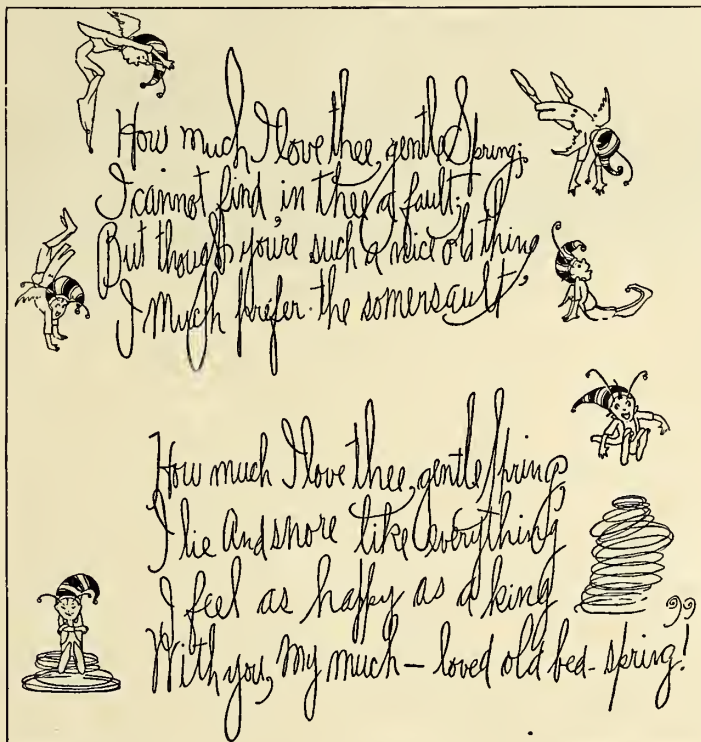 How much I love thee, gentle Spring;
I cannot find in thee a fault;
But though you're such a nice old thing
I much prefer the somersault

How much I love thee, gentle Spring,
I lie and snore like everything
I feel as happy as a king
With you, my much-loved old bed-spring!